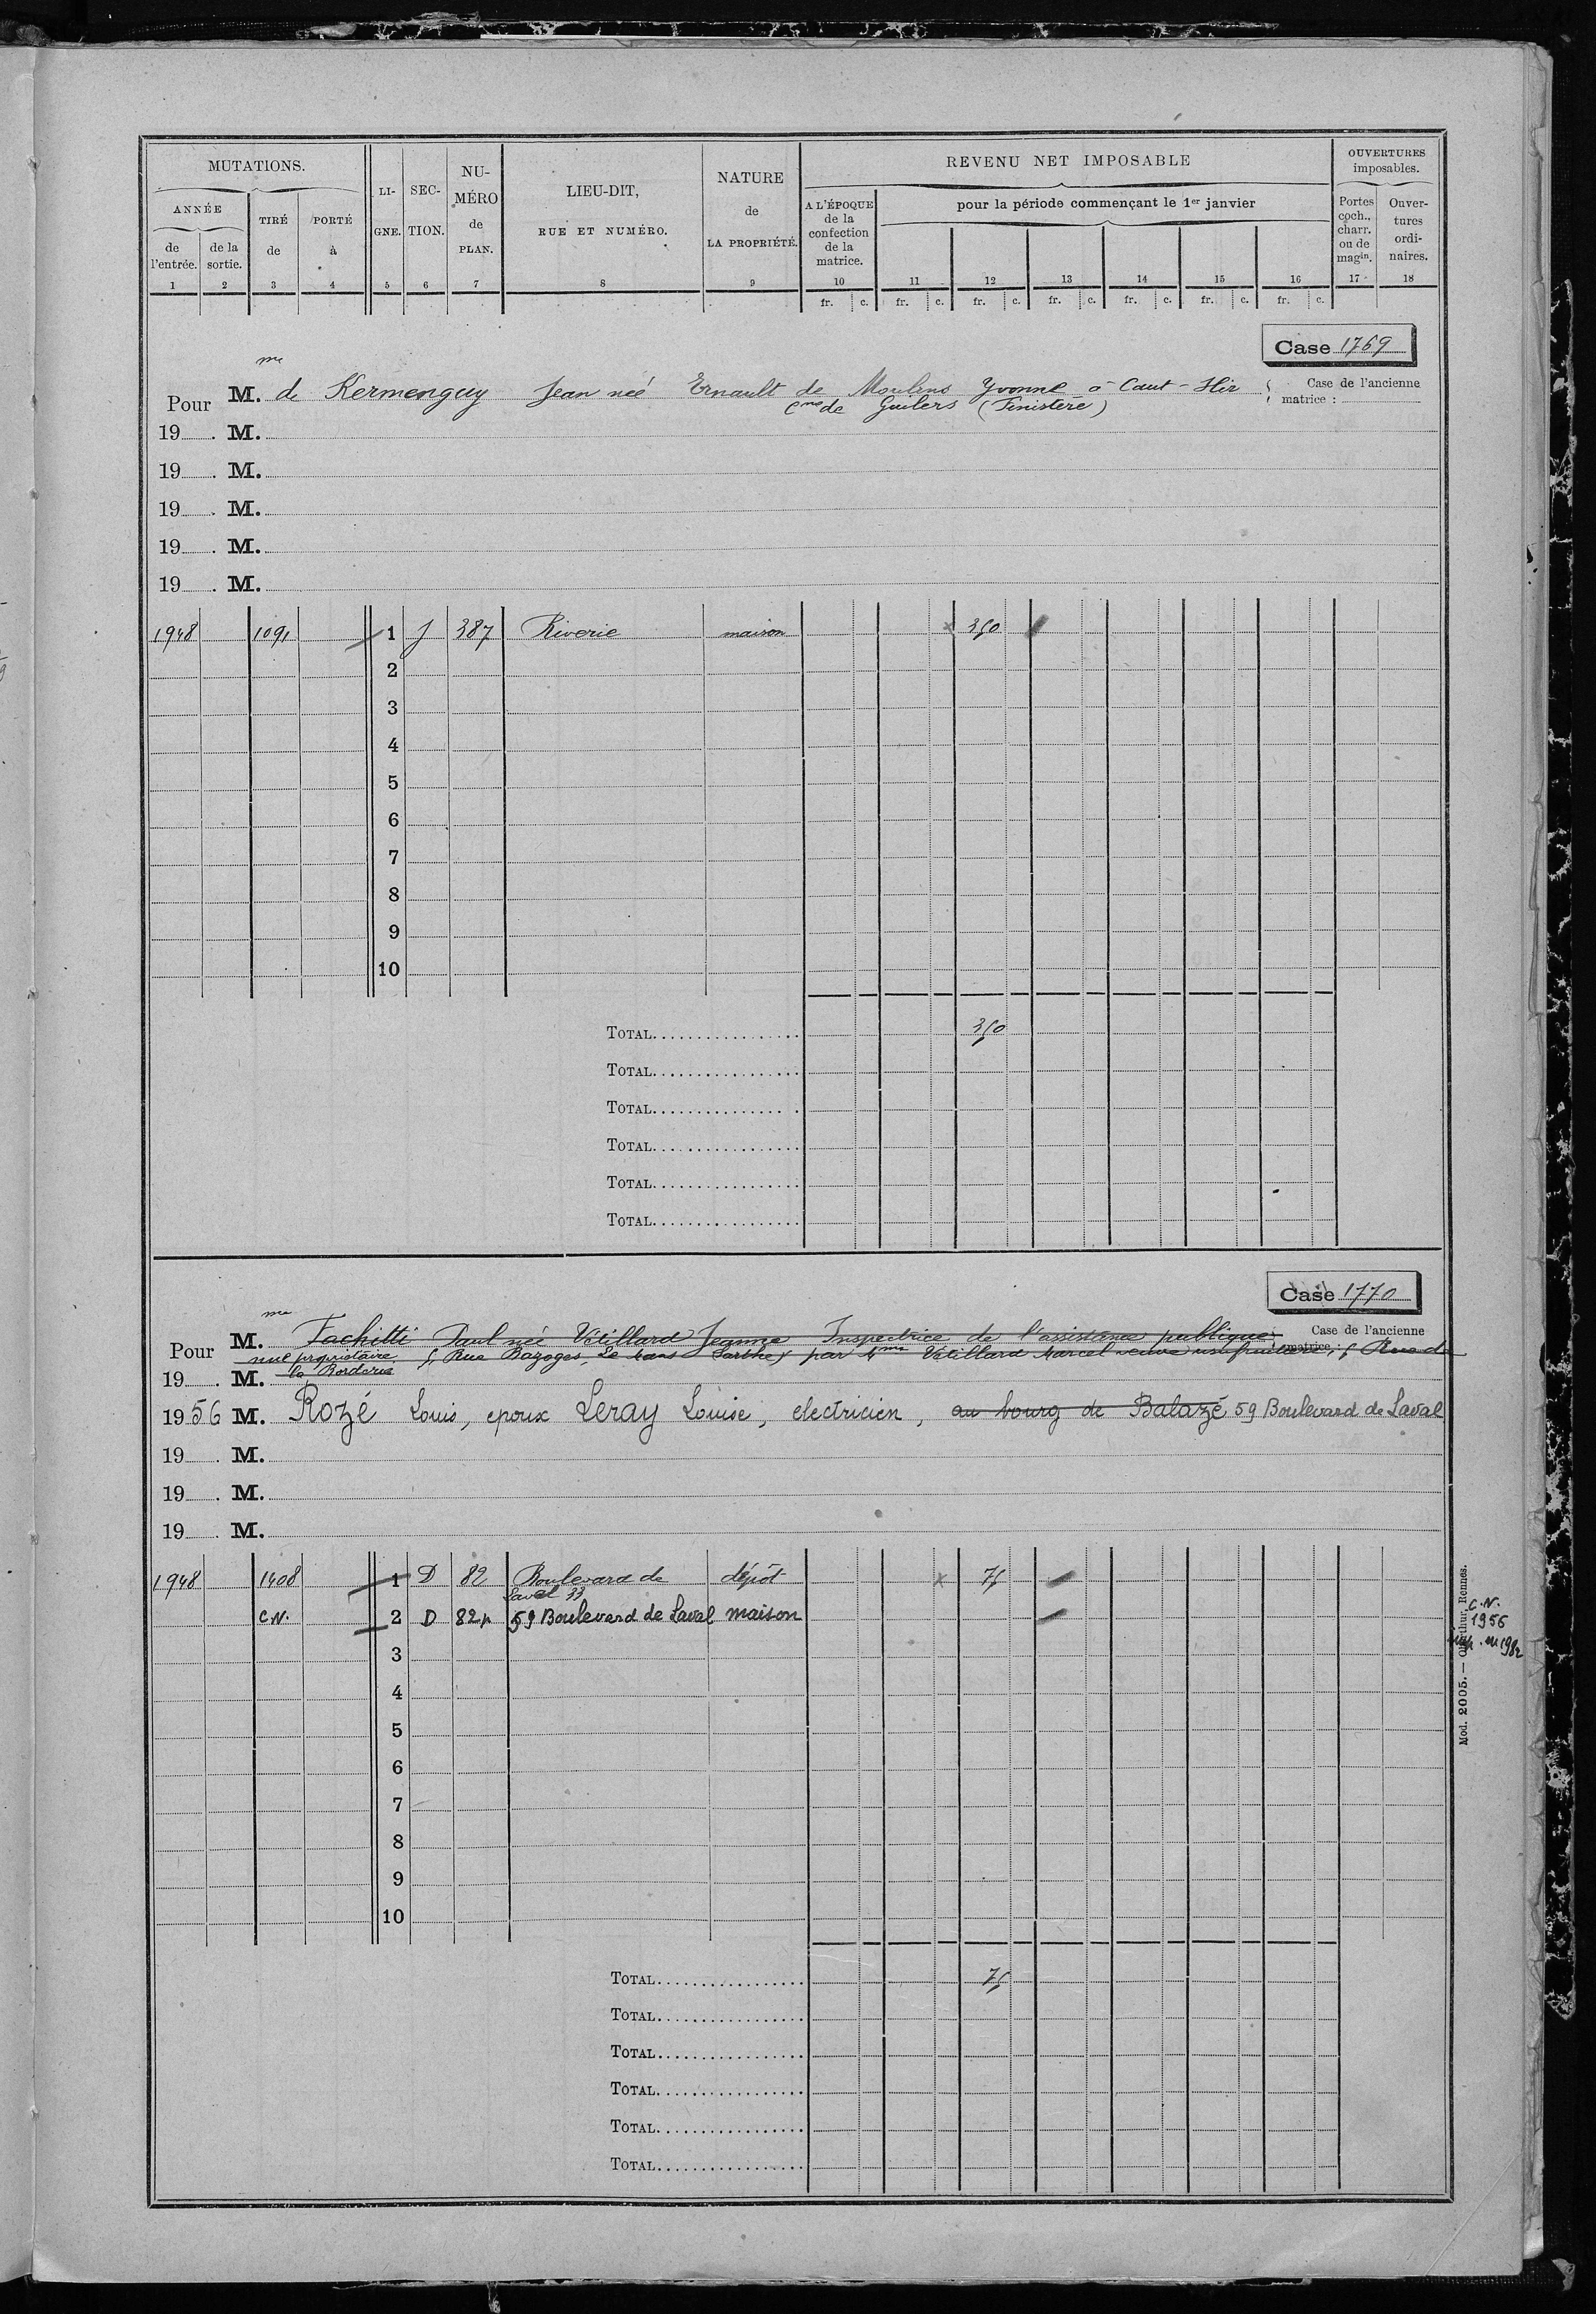 MUTATIONS.
ANNÉE
de l'entrée. de la sortie. TIRÉ de PORTÉ à
LI-GNE. SEC-TION. NU-MÉRO de PLAN.
LIEU-DIT, RUE ET NUMÉRO.
NATURE de LA PROPRIÉTÉ.
REVENU NET IMPOSABLE
A L'ÉPOQUE de la confection de la matrice.
pour la période commençant le 1er janvier
OUVERTURES imposables.
Portes coch., charr. ou de magin.
Ouver-tures ordi-naires.
1 2 3 4 5 6 7 8 9 10 11 12 13 14 15 16 17 18
fr. c. fr. c. fr. c. fr. c. fr. c. fr. c. fr. c.
Case 1769
Pour M.me de Kermenguy Jean née Ernault de Moulins Yvonne à Caut-Hir
Cne de Guilers (Finistère)
Case de l'ancienne matrice :
19 . M.
19 . M.
19 . M.
19 . M.
19 . M.
1948 1091 1 J 387 Riverie maison x 350
2
3
4
5
6
7
8
9
10
TOTAL 350
TOTAL
TOTAL
TOTAL
TOTAL
TOTAL
Case 1770
Pour M.me Fachitti Paul née Vétillard Jeanne Inspectrice de l'assistance publique
Case de l'ancienne matrice :
nue propriétaire 5, Rue Bazoges, Le Mans Sarthe, par Mme Vétillard Marcel veuve usufruitière, 5 Rue de
la Borderie
19 . M.
1956 M. Rozé Louis, epoux Leray Louise, electricien, au bourg de Balazé 59 Boulevard de Laval
19 . M.
19 . M.
19 . M.
1948 1408 1 D 82 Boulevard de dépôt x 75
Laval 33
C.N. 2 D 82p 59 Boulevard de Laval maison
3
4
5
6
7
8
9
10
TOTAL 75
TOTAL
TOTAL
TOTAL
TOTAL
TOTAL
Mod. 2005. — Oberthur, Rennes.
C.N.
1956
imp. en 1982